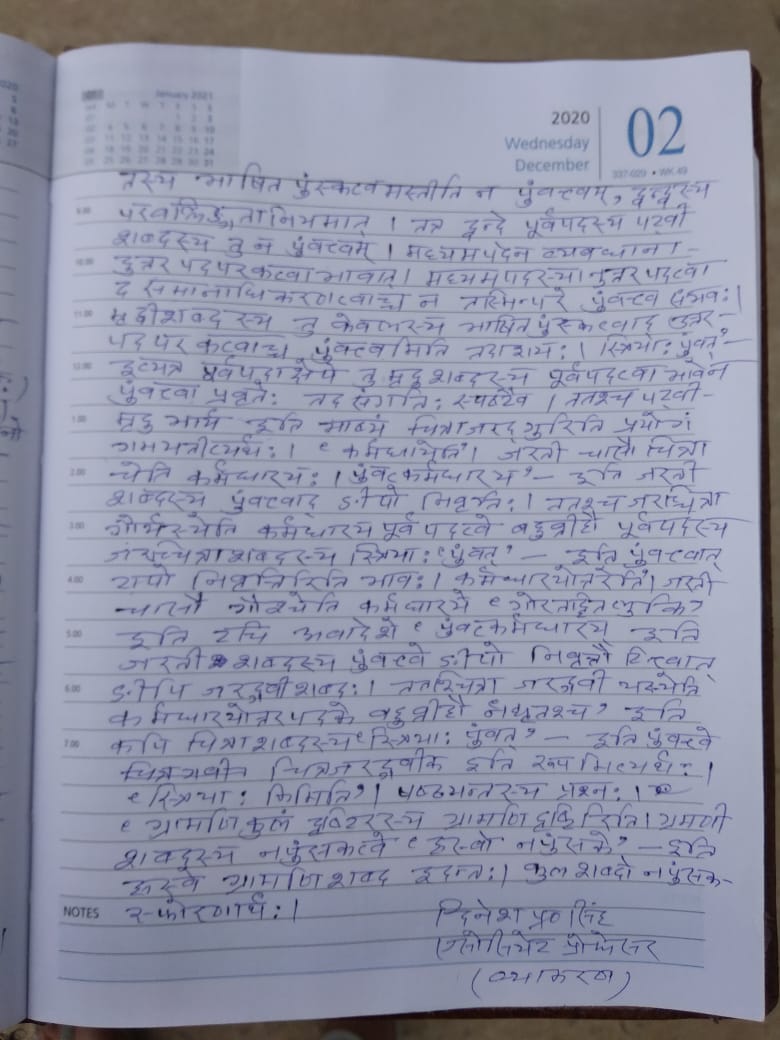 January 2021
2020
Wednesday
December
02
337-029 • WK 49
तस्य भाषित पुंस्कत्वमस्तीति न पुंवत्त्वम्, द्वन्द्वस्य
परवल्लिङ्गतानियमात् । तत्र द्वन्द्वे पूर्वपदस्य पट्वी
9.00
शब्दस्य तु न पुंवत्त्वम् । मध्यमपदेन व्यवधाना-
10.00
दुत्तरपदपरकत्वाभावात्। मध्यमपदस्यानुत्तरपदत्वा
द समानाधिकरणत्वाच्च न तस्मिन्परे पुंवत्त्व संभवः।
11.00
मृद्वीशब्दस्य तु केवलस्य भाषितपुंस्कत्वाद् उत्तर-
पदपरकत्वाच्च पुंवत्त्वमिति तदाशयः। स्त्रियाः पुंवत्'-
12.00
इत्यत्र पूर्वपदाक्षेपे तु मृदुशब्दस्य पूर्वपदत्वाभावेन
पुंवत्त्वा प्रवृत्तेः तदसंगतिः स्पष्टैव । ततश्च पट्वी-
1.00
मृदुभार्य इति भाष्यं चित्राजरद्गुरिति प्रयोगं
गमयतीत्यर्थः। 'कर्मधारयेति'। जरती चासौ चित्रा
2.00
चेति कर्मधारयः। 'पुंवत्कर्मधारय'- इति जरती
शब्दस्य पुंवत्त्वाद् ङीपो निवृत्तिः। ततश्च जरच्चित्रा
3.00
गौर्यस्येति कर्मधारयपूर्वपदत्वे बहुव्रीहौ पूर्वपदस्य
जरच्चित्राशब्दस्य स्त्रियाः 'पुंवत्'- इति पुंवत्त्वात्
4.00
टापो निवृत्तिरिति भावः। कर्मधारयोत्तरेति। जरती
चासौ गौश्चेति कर्मधारये 'गोरतद्धितलुकि'
5.00
इति टचि अवादेशे 'पुंवत्कर्मधारय इति
जरती शब्दस्य पुंवत्त्वे ङीपो निवृत्तौ टित्त्वात्
6.00
ङीपि जरद्गवीशब्दः। ततश्चित्रा जरद्गवी यस्येति
कर्मधारयोत्तरपदके बहुव्रीहौ नद्यृतश्च' इति
7.00
कपि चित्राशब्दस्य 'स्त्रियाः पुंवत्'- इति पुंवत्त्वे
चित्रजरद्गवीक इति रूपमित्यर्थः।
'स्त्रियाः किमिति'। षष्ठ्यन्तस्य प्रश्नः।
'ग्रामणि कुलं दृष्टिरस्य ग्रामणिदृष्टिरिति। ग्रामणी
शब्दस्य नपुंसकत्वे 'ह्रस्वो नपुंसके'- इति
ह्रस्वे ग्रामणिशब्द इदन्तः। कुलशब्दो नपुंसक-
NOTES
स्फोरणार्थः।
दिनेश प्र० सिंह
एसोसियेट प्रोफेसर
(व्याकरण)